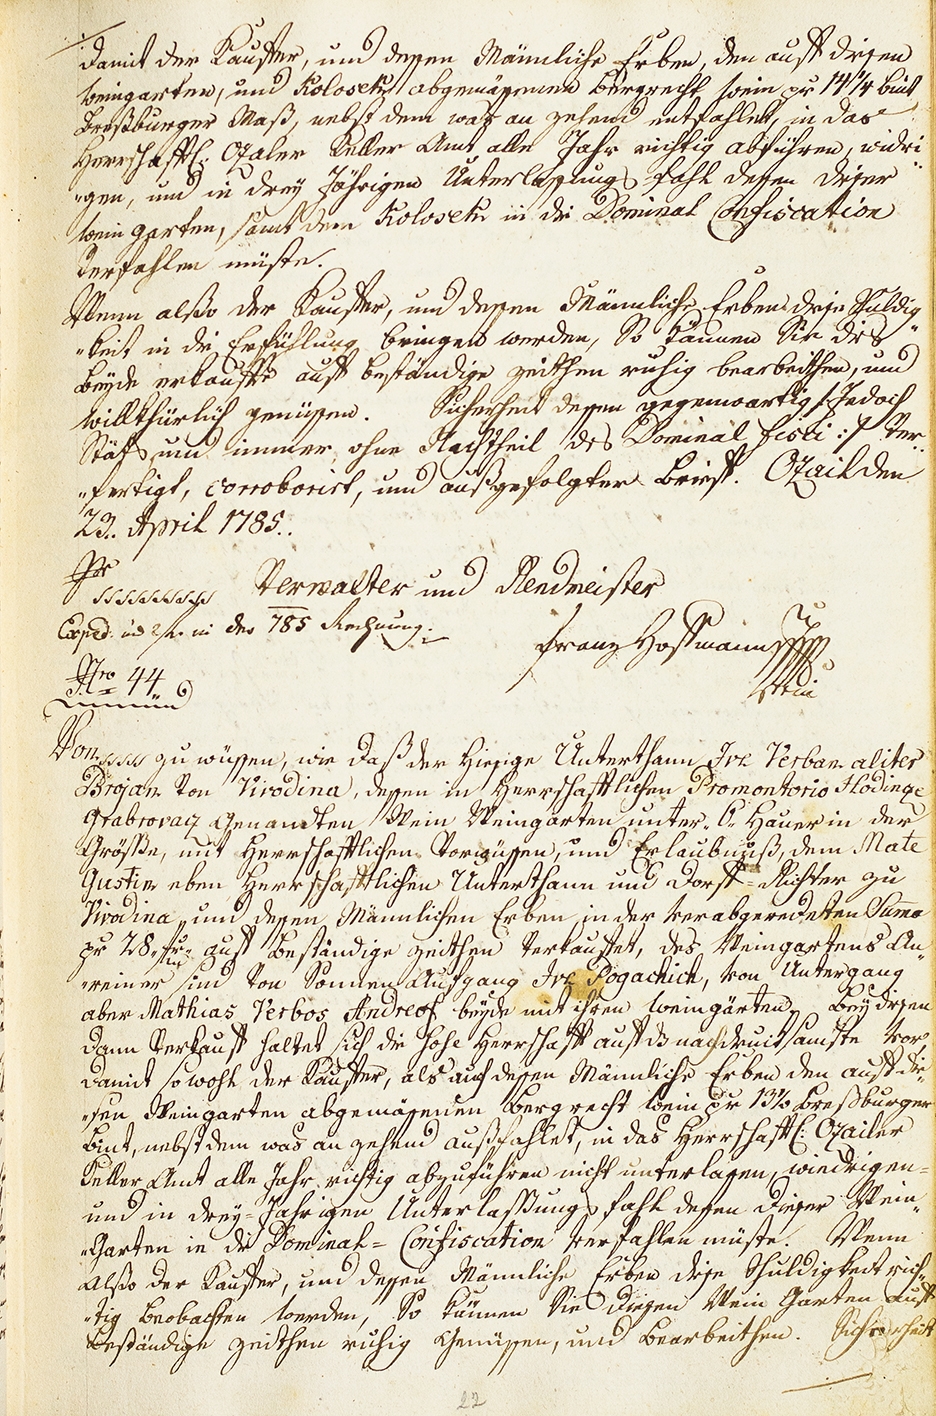 damit der Kauffer, und dessen Männliche Erben, den auff disen
Weingarten, und Kolosek abgemässenen Bergrecht wein pr 14¼ bint
Bresburger Maß, nebst dem was an zehend entfahlet, in das
Herrschaftl: Ozaler Keller Amt alle Jahr richtig abführen, widri
"gen, und in drey Jährigen Unterlassungs fahl dessen diser
Wein garten, samt dem Kolosek in die Dominal Confiscation
Verfahlen müste.
Wenn also der Kauffer, und dessen Männliche Erben dise Schuldig
"keit in die Erfühlung bringen werden, So können Sie dis
Beyde erkauffte auff beständige zeithen ruhig bearbeithen, und
willkhürlich genüssen. Sicherheit dessen gegenwartig /:Jedoch
Stäts und immer ohne Nachtheil des Dominal fisci :/ Ver
"fertigt, corroborirt, und außgefolgter Brieff. Ozail den
23. April 1785.
Verwalter und Rendmeister
Exped: in der 785 Rechnung.
Franz Hoffmann
Nro 44
Von zu wüssen, wie daß der Hiesige Unterthann Ive Verban aliter
Brojan Von Vivodina, dessen in Herrschafftlichen Promontorio Hodinge
Grabrovaz Genandten Wein Weingarten unter 6 Hauer in der
Größe, mit Herrschafftlichen Vorwüssen, und Erlaubnuß, dem Mate
Gustin eben Herrschafftlichen Unterthann und Dorff-Richter zu
Vivodina und dessen Männlichen Erben in der verabgeredeten Suma
pr 28 fr auff Beständige zeithen Verkauffet, des Weingartens An
"reiner sind Von Sonnen Aufgang Ive Pogachich, von Untergang
aber Mathias Verbos Andreof beyde mit ihren Weingärten. Bey disen
dann Verkauff haltet sich die Hohe Herrschafft auff das nachdrucksamste Vor
damit so wohl der Kauffer, als auch dessen Männliche Erben den auff di
"sen Weingarten abgemässenen Bergrecht Wein pr 13½ Bresburger
Bint, nebst dem was an zehend außfahlet, in das Herrschafftl: Ozailer
Keller Amt alle Jahr richtig abzuführen nicht unterlasen, wiedrigen-
und in drey-Jahrigen Unterlassungs fahl dessen diser Wein
"Garten in die Dominal-Confiscation Verfahlen müste. Wenn
Also der Kauffer, und dessen Männliche Erben dise Schuldigkeit rich
"tig Beobachten werden, So können Sie diesen Wein Garten auff
Beständige zeithen ruhig Genüssen, und Bearbeithen. Sicherheit
22